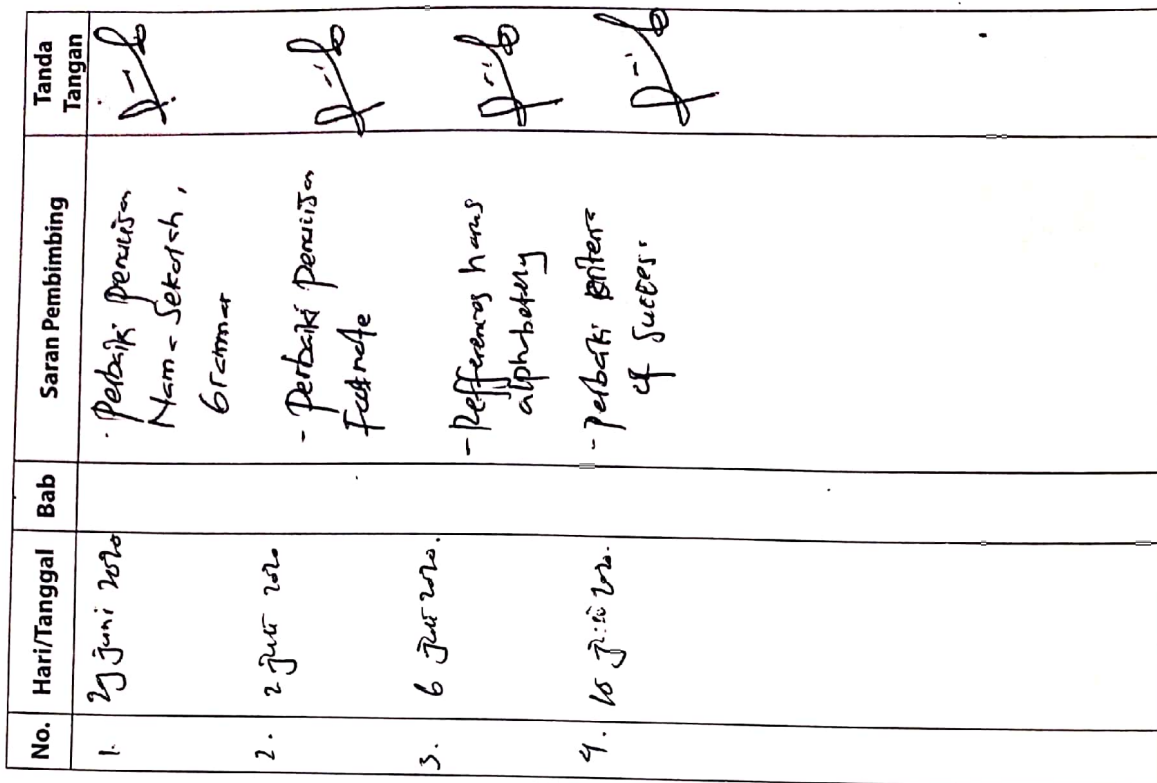 No. Hari/Tanggal Bab Saran Pembimbing Tanda Tangan
1. 29 juni 2020 - perbaiki penulisan
Nama Sekolah,
Grammar
2. 2 juli 2020 - perbaiki penulisan
Footnote
3. 6 juli 2020. - Refferences harus
alphabetly
4. juli 2020. - perbaiki kriteria
of success.